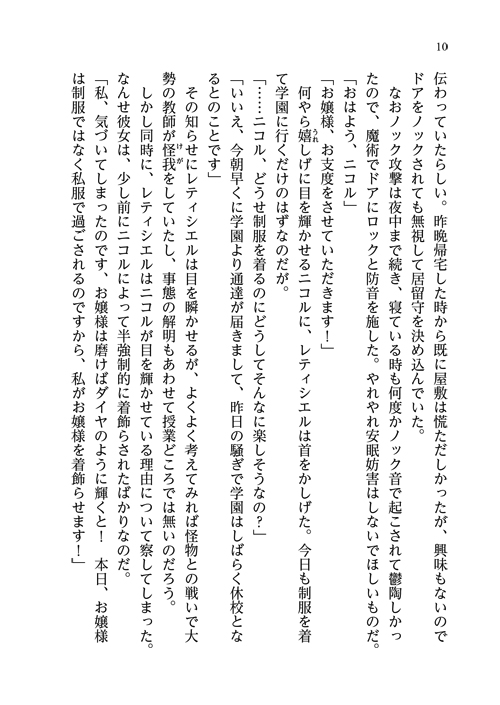 10
伝わっていたらしい。昨晩帰宅した時から既に屋敷は慌ただしかったが、興味もないので
ドアをノックされても無視して居留守を決め込んでいた。
なおノック攻撃は夜中まで続き、寝ている時も何度かノック音で起こされて鬱陶しかっ
たので、魔術でドアにロックと防音を施した。やれやれ安眠妨害はしないでほしいものだ。
「おはよう、ニコル」
「お嬢様、お支度をさせていただきます！」
何やら嬉しげに目を輝かせるニコルに、レティシエルは首をかしげた。今日も制服を着
て学園に行くだけのはずなのだが。
「……ニコル、どうせ制服を着るのにどうしてそんなに楽しそうなの？」
「いいえ、今朝早くに学園より通達が届きまして、昨日の騒ぎで学園はしばらく休校とな
るとのことです」
その知らせにレティシエルは目を瞬かせるが、よくよく考えてみれば怪物との戦いで大
勢の教師が怪我をしていたし、事態の解明もあわせて授業どころでは無いのだろう。
しかし同時に、レティシエルはニコルが目を輝かせている理由について察してしまった。
なんせ彼女は、少し前にニコルによって半強制的に着飾らされたばかりなのだ。
「私、気づいてしまったのです、お嬢様は磨けばダイヤのように輝くと！　本日、お嬢様
は制服ではなく私服で過ごされるのですから、私がお嬢様を着飾らせます！」